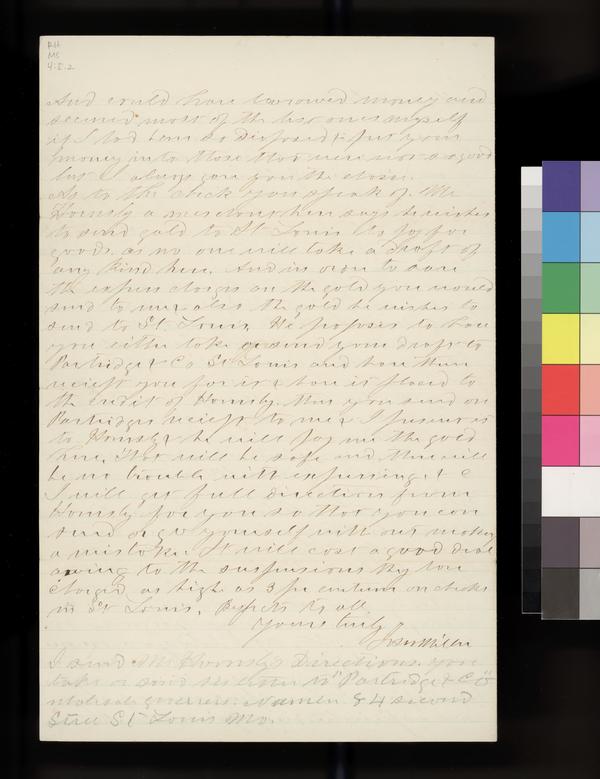 RH
MS
4:I.2
And could have borrowed money and
seemed most of the best ones myself
if I had been so disposed & put your
money into those that were not so good
but I always gave you the choice.
As to the check you speak of. Mr
Hornsby a merchant here says he wishes
to send gold to St Louis to pay for
goods. as no one will take a draft of
any kind here. And in order to save
the express charges on the gold you would
send to me & also the gold he wishes to
send to St. Louis. He proposes to have
you either take or send your draft to
Partridge & Co St Louis and have them
reciept you for it & have it placed to
the credit of Hornsby. then you send on
Partridges reciept to me & I present it
to Hornsby & he will pay me the gold
here. That will be safe and there will
be no trouble with expressing & c
I will get full directions from
Hornsby for you so that you can
send or go yourself without making
a mistake. It will cost a good deal
owing to the suspensions they have
charged as high as 3 per centum on checks
in St Louis. Respects to all.
Yours truly
Miller
I send Mr Hornsby's Directions. you
take or send his letter to "Partridge & Co"
wholesale grocers. Number 84 second
Street St Louis Mo.